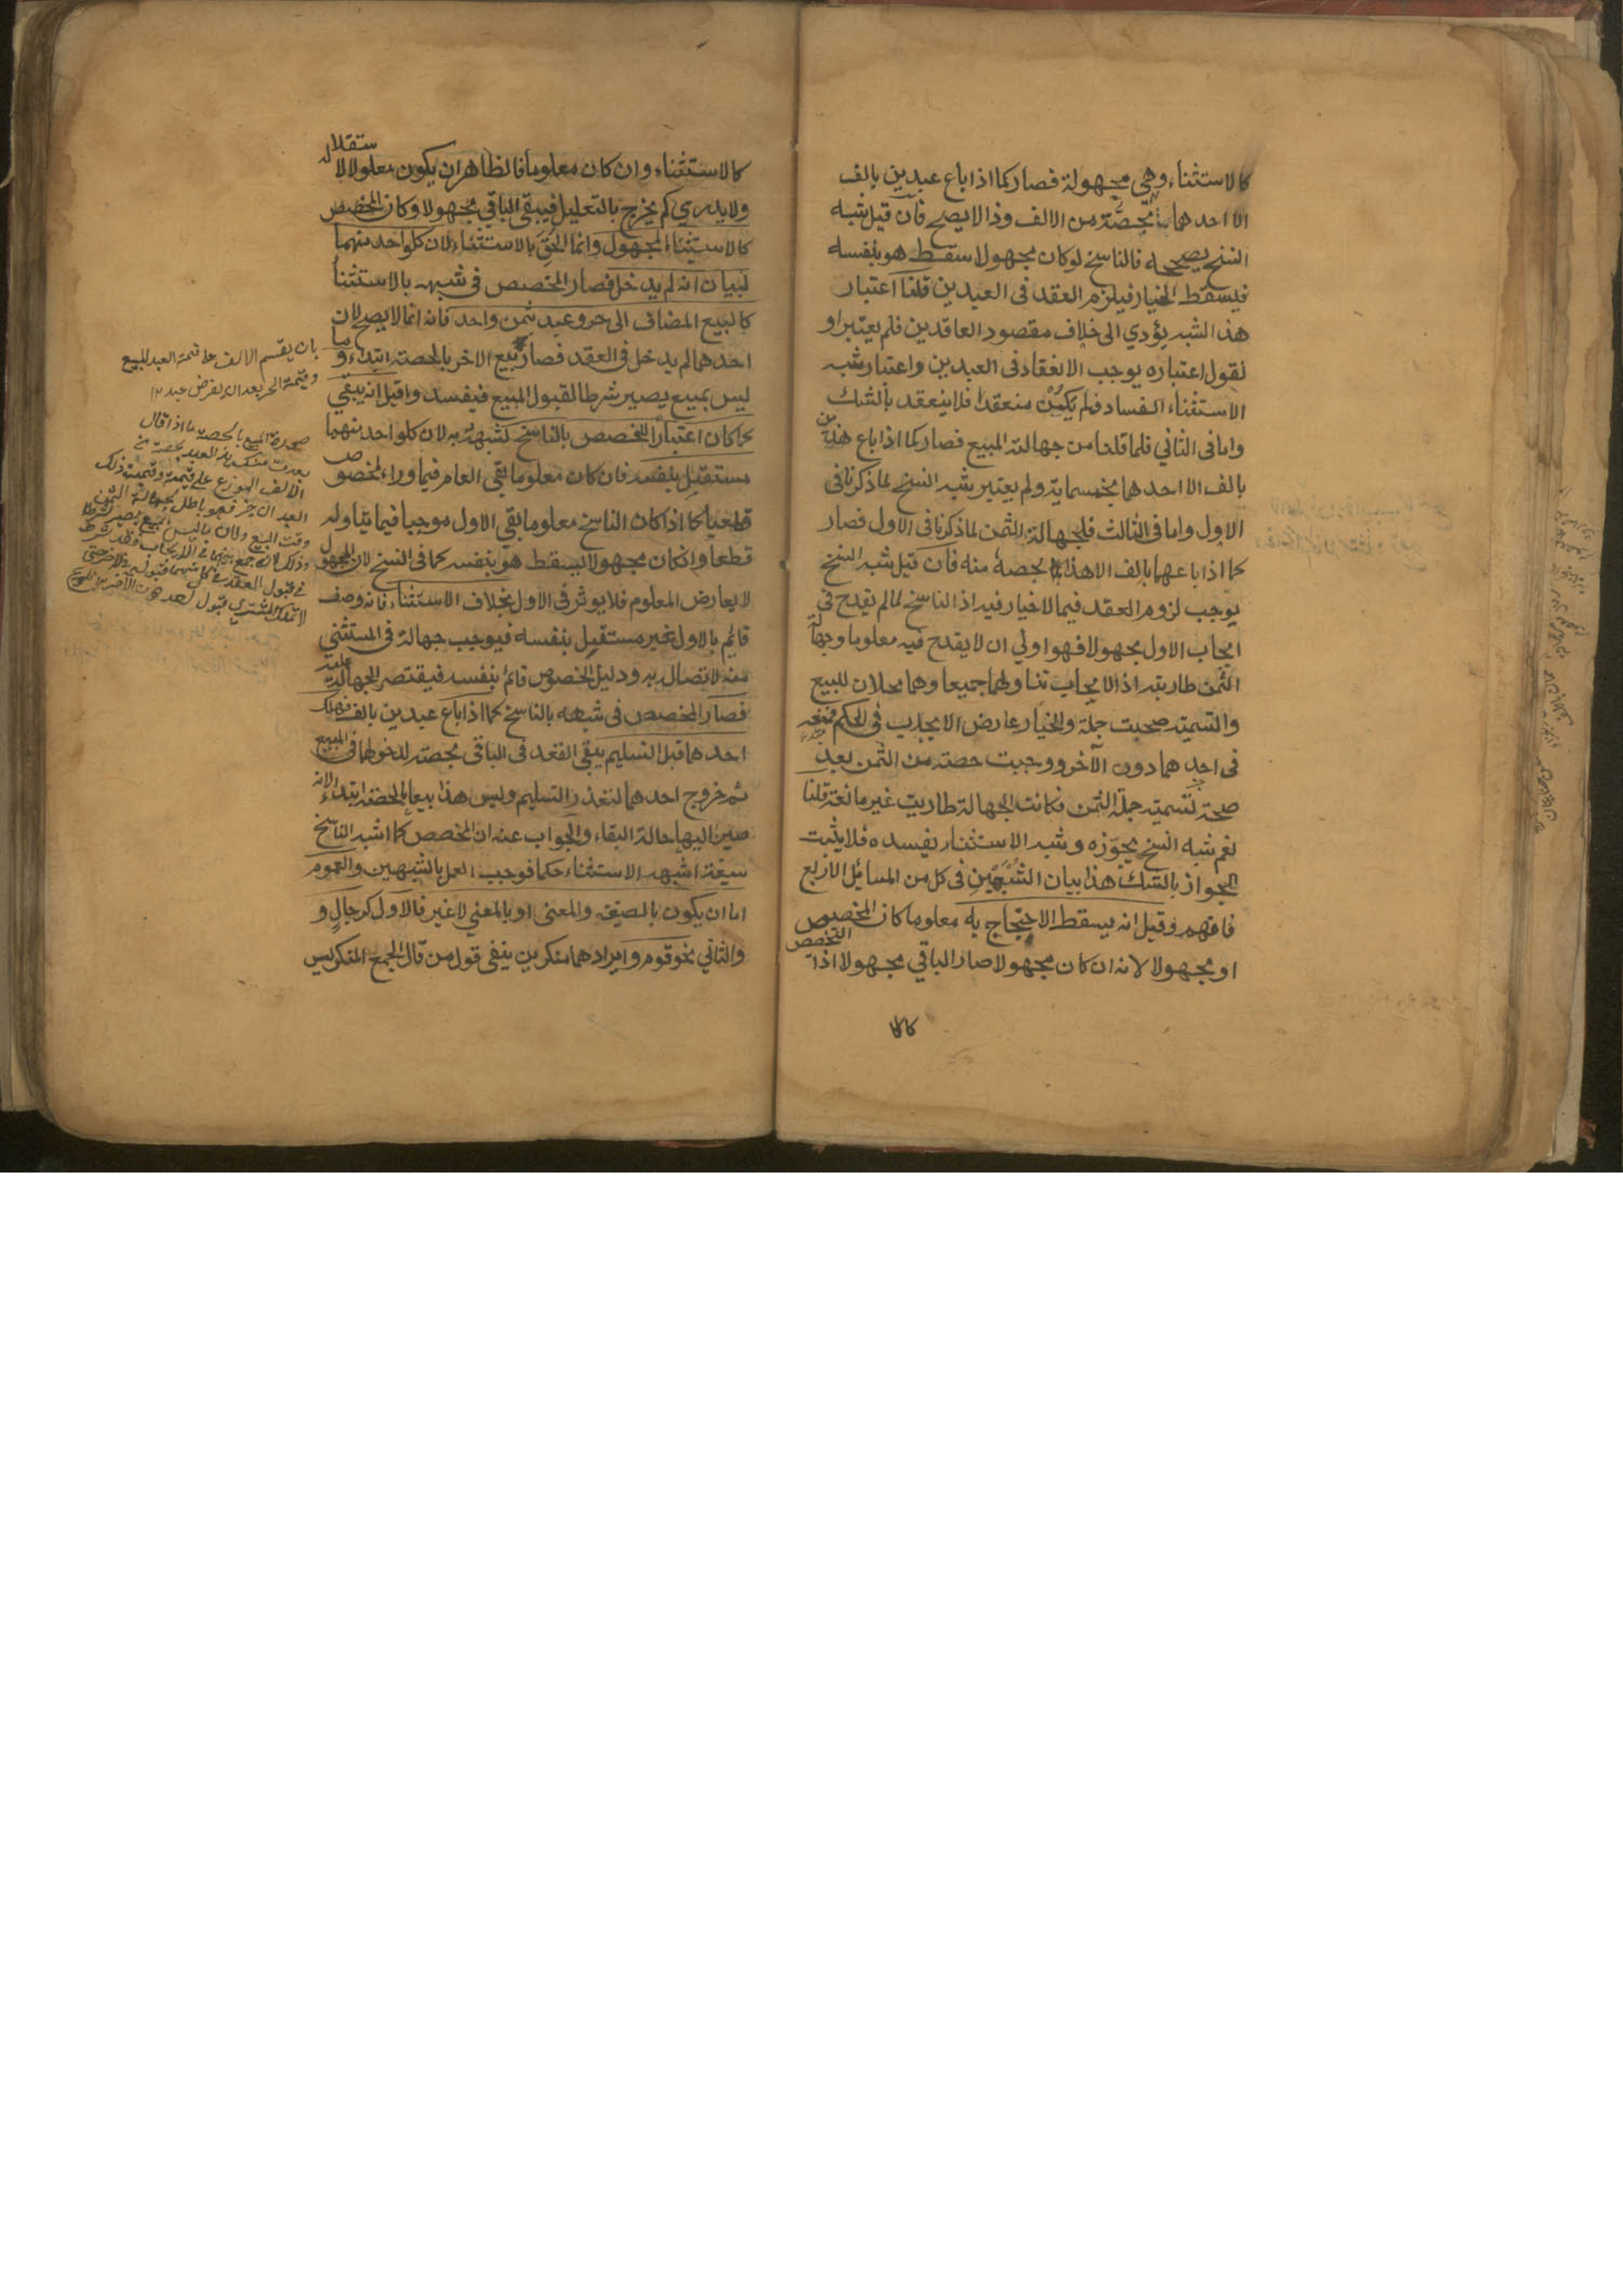 كالاستثناء وهي مجهولة فصار كما اذا باع عبدين بالف
الا احدهما بحصته من الالف وذا لا يصح فان قيل شبه
النسخ يصححه فالناسخ لو كان مجهولا سقط هو بنفسه
فيسقط الخيار فيلزم العقد فى العبدين قلنا اعتبار
هذا الشبه يؤدي الى خلاف مقصود العاقدين فلم يعتبر او
نقول اعتباره يوجب الانعقاد فى العبدين واعتبار شبه
الاستثناء الفساد فلم يكن منعقدا فلا ينعقد بالشك
واما فى الثاني فلما قلنا من جهالة المبيع فصار كما اذا باع هذين
بالف الا احدهما بخمسماية ولم يعتبر شبه النسخ لما ذكرنا فى
الاول واما فى الثالث فلجهالة الثمن لما ذكرنا فى الاول فصار
كما اذا باعهما بالف الا هذا بحصة منه فان قيل شبه النسخ
يوجب لزوم العقد فيما لا خيار فيه اذ الناسخ لما لم يقدح فى
ايجاب الاول مجهولا فهو اولي ان لا يقدح فيه معلوما وجهالة
الثمن طارية اذ الايجاب تناولهما جميعا وهما محلان للبيع
والتسمية صحت جملة والخيار عارض الايجاب فى الحكم فمنعه
فى احدهما دون الآخر ووجبت حصته من الثمن بعد
صحة تسمية جملة الثمن فكانت الجهالة طارية غير مانعة قلنا
نعم شبه النسخ يجوزه وشبه الاستثناء يفسده فلا يثبت
الجواز بالشك هذا بيان الشبهين فى كل من المسائل الاربع
فافهم وقيل انه يسقط الاحتجاج به معلوما كان المخصوص
او مجهولا لانه ان كان مجهولا صار الباقي مجهولا اذ التخصيص
كالا
كالاستثناء وان كان معلوما فالظاهر ان يكون معلولا لاستقلاله
ولا يدري كم يخرج بالتعليل فيبقى الباقي مجهولا وكان المخصص
كالاستثناء المجهول وانما الحق بالاستثناء لان كلواحد منهما
لبيان انه لم يدخل فصار المخصص فى شبهه بالاستثنا
كالبيع المضاف الى حر وعبد بثمن واحد فانه انما لا يصح لان
احدهما لم يدخل فى العقد فصار بيع الاخر بالحصة ابتداء وما
ليس بمبيع يصير شرطا لقبول المبيع فيفسد وقيل انه يبقي
كما كان اعتبارا للمخصص بالناسخ لشبهه به لان كلواحد منهما
مستقل بنفسه فان كان معلوما بقي العام فيما وراء المخصوص
قطعيا كما اذا كان الناسخ معلوما بقي الاول موجبا فيما يتناوله
قطعا وانكان مجهولا يسقط هو بنفسه كما فى النسخ لان المجهول
لا يعارض المعلوم فلا يوثر فى الاول بخلاف الاستثناء فانه وصف
قائم بالاول غير مستقل بنفسه فيوجب جهالة فى المستثني
منه لاتصاله به ودليل الخصوص قائم بنفسه فيقتصر الجهالة عليه
فصار المخصص فى شبهه بالناسخ كما اذا باع عبدين بالف فهلك
احدهما قبل التسليم يبقي العقد فى الباقي بحصته لدخولهما فى المبيع
ثم خروج احدهما لتعذر التسليم وليس هذا بيعا بالحصة ابتداء لانه
صير اليها حالة البقاء والجواب عنه ان المخصص كما اشبه الناسخ
صيغة اشبه الاستثناء حكما فوجب العمل بالشبهين والعموم
اما ان يكون بالصيغة والمعنى او بالمعني لا غير فالاول كرجال و
والثاني نحو قوم وايرادهما منكرين ينفى قول من قال الجمع المنكر ليس
بان يقسم الالف على قيمة العبد المبيع
وقيمة الحر بعد ان يفرض عبدا ١٢
صورة البيع بالحصة ما اذا قال
بعت منك هذا العبد بحصته من
الالف الموزع على قيمته وقيمة ذلك
العبد الاخر فهو باطل لجهالة الثمن
وقت البيع ولان ما ليس بمبيع يصير شرطا
وذلك لانه جمع بينهما فى الايجاب فقد شرط
فى قبول العقد فى كل منهما قبوله فى الاخر حتى
لا يملك المشتري قبول احدهما دون الآخر تلويح